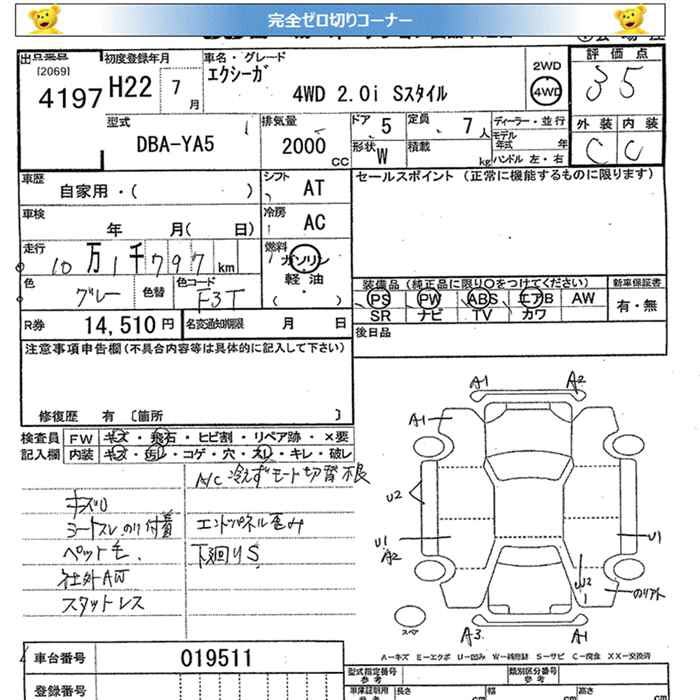 完全ゼロ切りコーナー
出品番号 初度登録年月 車名・グレード 評価点
[2069] 4197 H22 7月 エクシーガ 2WD 4WD 3 5
4WD 2.0i Sスタイル
型式 排気量 ドア 5 定員 7人 ディーラー・並行 外装 内装
DBA-YA5 2000 CC 形状 W 積載 kg モデル年式 年 C C
ハンドル 左・右
車歴 自家用・( ) シフト AT セールスポイント (正常に機能するものに限ります)
車検 年 月( 日) 冷房 AC
走行 10万1千797km 燃料 ガソリン 軽油 ( )
色 グレー 色替 色コード F3T 装備品 (純正品に限り○をつけてください) 新車保証書
PS PW ABS エアB AW 有・無
SR ナビ TV カワ
R券 14,510円 名変通知期限 月 日 後日品
注意事項申告欄(不具合内容等は具体的に記入して下さい)
修復歴 有 [箇所 ]
検査員 FW キズ・飛石・ヒビ割・リペア跡・×要
記入欄 内装 キズ・汚レ・コゲ・穴・スレ・キレ・破レ
A/C冷えずモート切替不良
キズU
シートスレのり付着 エンドパネル歪み
ペット毛. 下廻りS
社外AW
スタットレス
A1 A2
A1
U2
U1 U1
A2
U2 のりアト
スペア
A3 A1
A-キズ E-エクボ U-凹み W-補修跡 S-サビ C-腐食 XX-交換済
車台番号 019511 型式指定番号 参考 類別区分番号 参考
登録番号 車庫証明用 参考 長さ cm 幅 cm 高さ cm